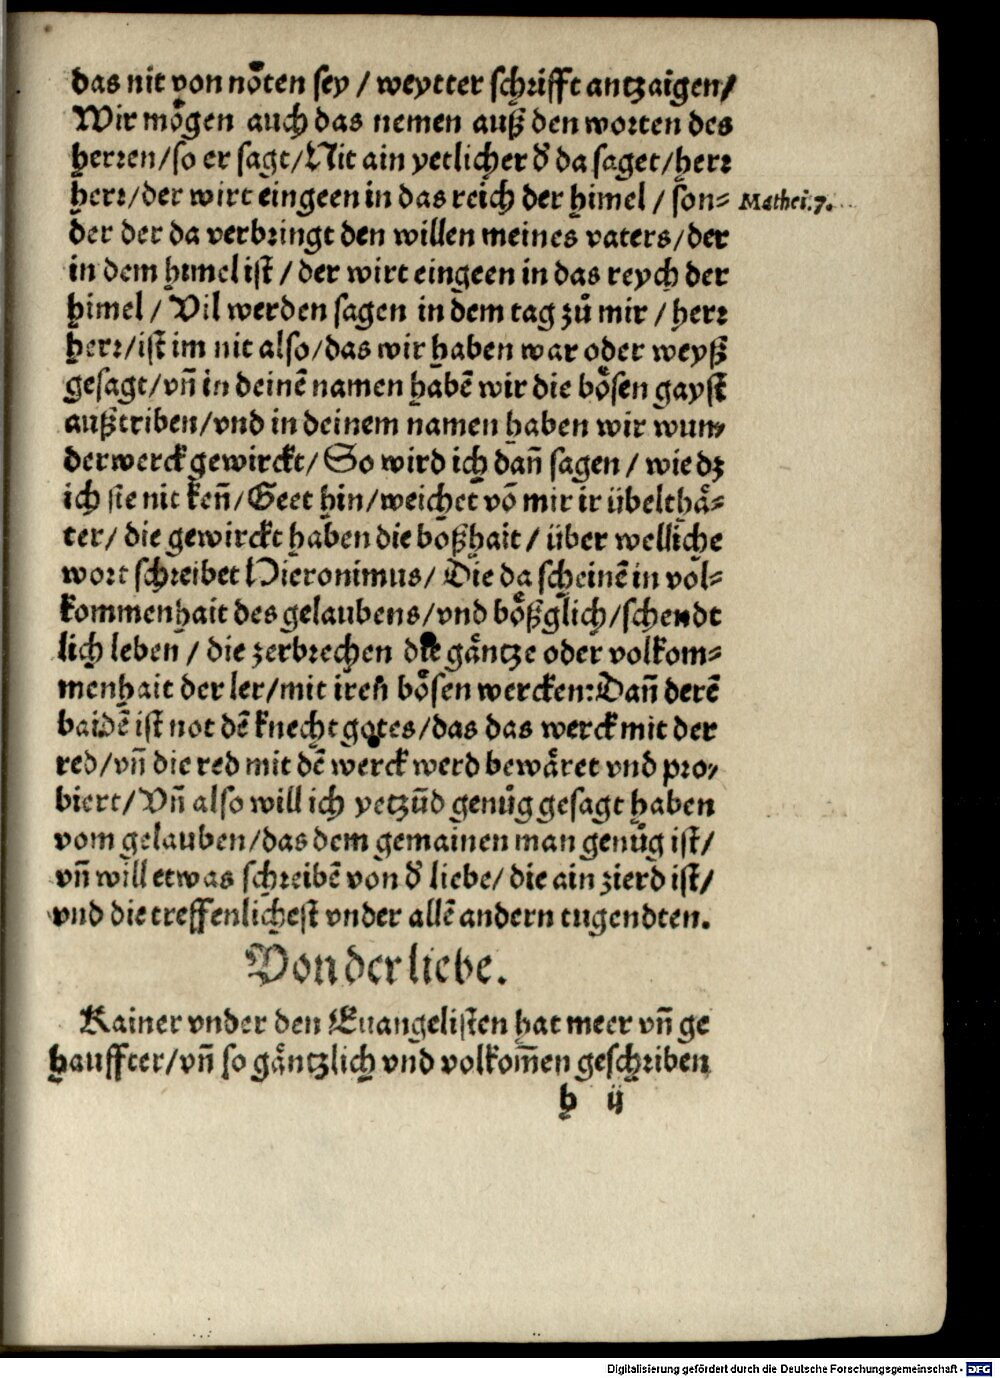 das nit von nöten sey / weytter schrifft antzaigen/
Wir mögen auch das nemen auß den worten des
herren/so er sagt/Nit ain yetlicher d̓ da saget/herr
herr/der wirt eingeen in das reich der himel / son⸗ Mathei.7.
der der da verbringt den willen meines vaters/der
in dem himel ist / der wirt eingeen in das reych der
himel / Vil werden sagen in dem tag zů mir / herr
herr/ist im nit also/das wir haben war oder weyß
gesagt/vñ in deinē namen habē wir die bösen gayst
außtriben/vnd in deinem namen haben wir wun⸗
derwerck gewirckt/ So wird ich dañ sagen / wie dz
ich sie nit keñ/Geet hin/weichet vō mir ir übelthä⸗
ter/ die gewirckt haben die boßhait / über welliche
wort schreibet Hieronimus/ Die da scheinē in vol⸗
kommenhait des gelaubens/vnd bößglich/schendt
lich leben / die zerbrechen die gäntze oder volkom⸗
menhait der ler/mit iren bösen wercken:Dañ derē
baidē ist not dē knecht gotes/das das werck mit der
red/vñ die red mit dē werck werd bewäret vnd pro⸗
biert/Vñ also will ich yetzūd genůg gesagt haben
vom gelauben/das dem gemainen man genůg ist/
vñ will etwas schreibē von d̓ liebe/ die ain zierd ist/
vnd die treffenlichest vnder allē andern tugendten.
Von der liebe.
Kainer vnder den Euangelisten hat meer vñ ge
hauffter/vñ so gäntzlich vnd volkom̄en geschriben
h ij
Digitalisierung gefördert durch die Deutsche Forschungsgemeinschaft - DFG